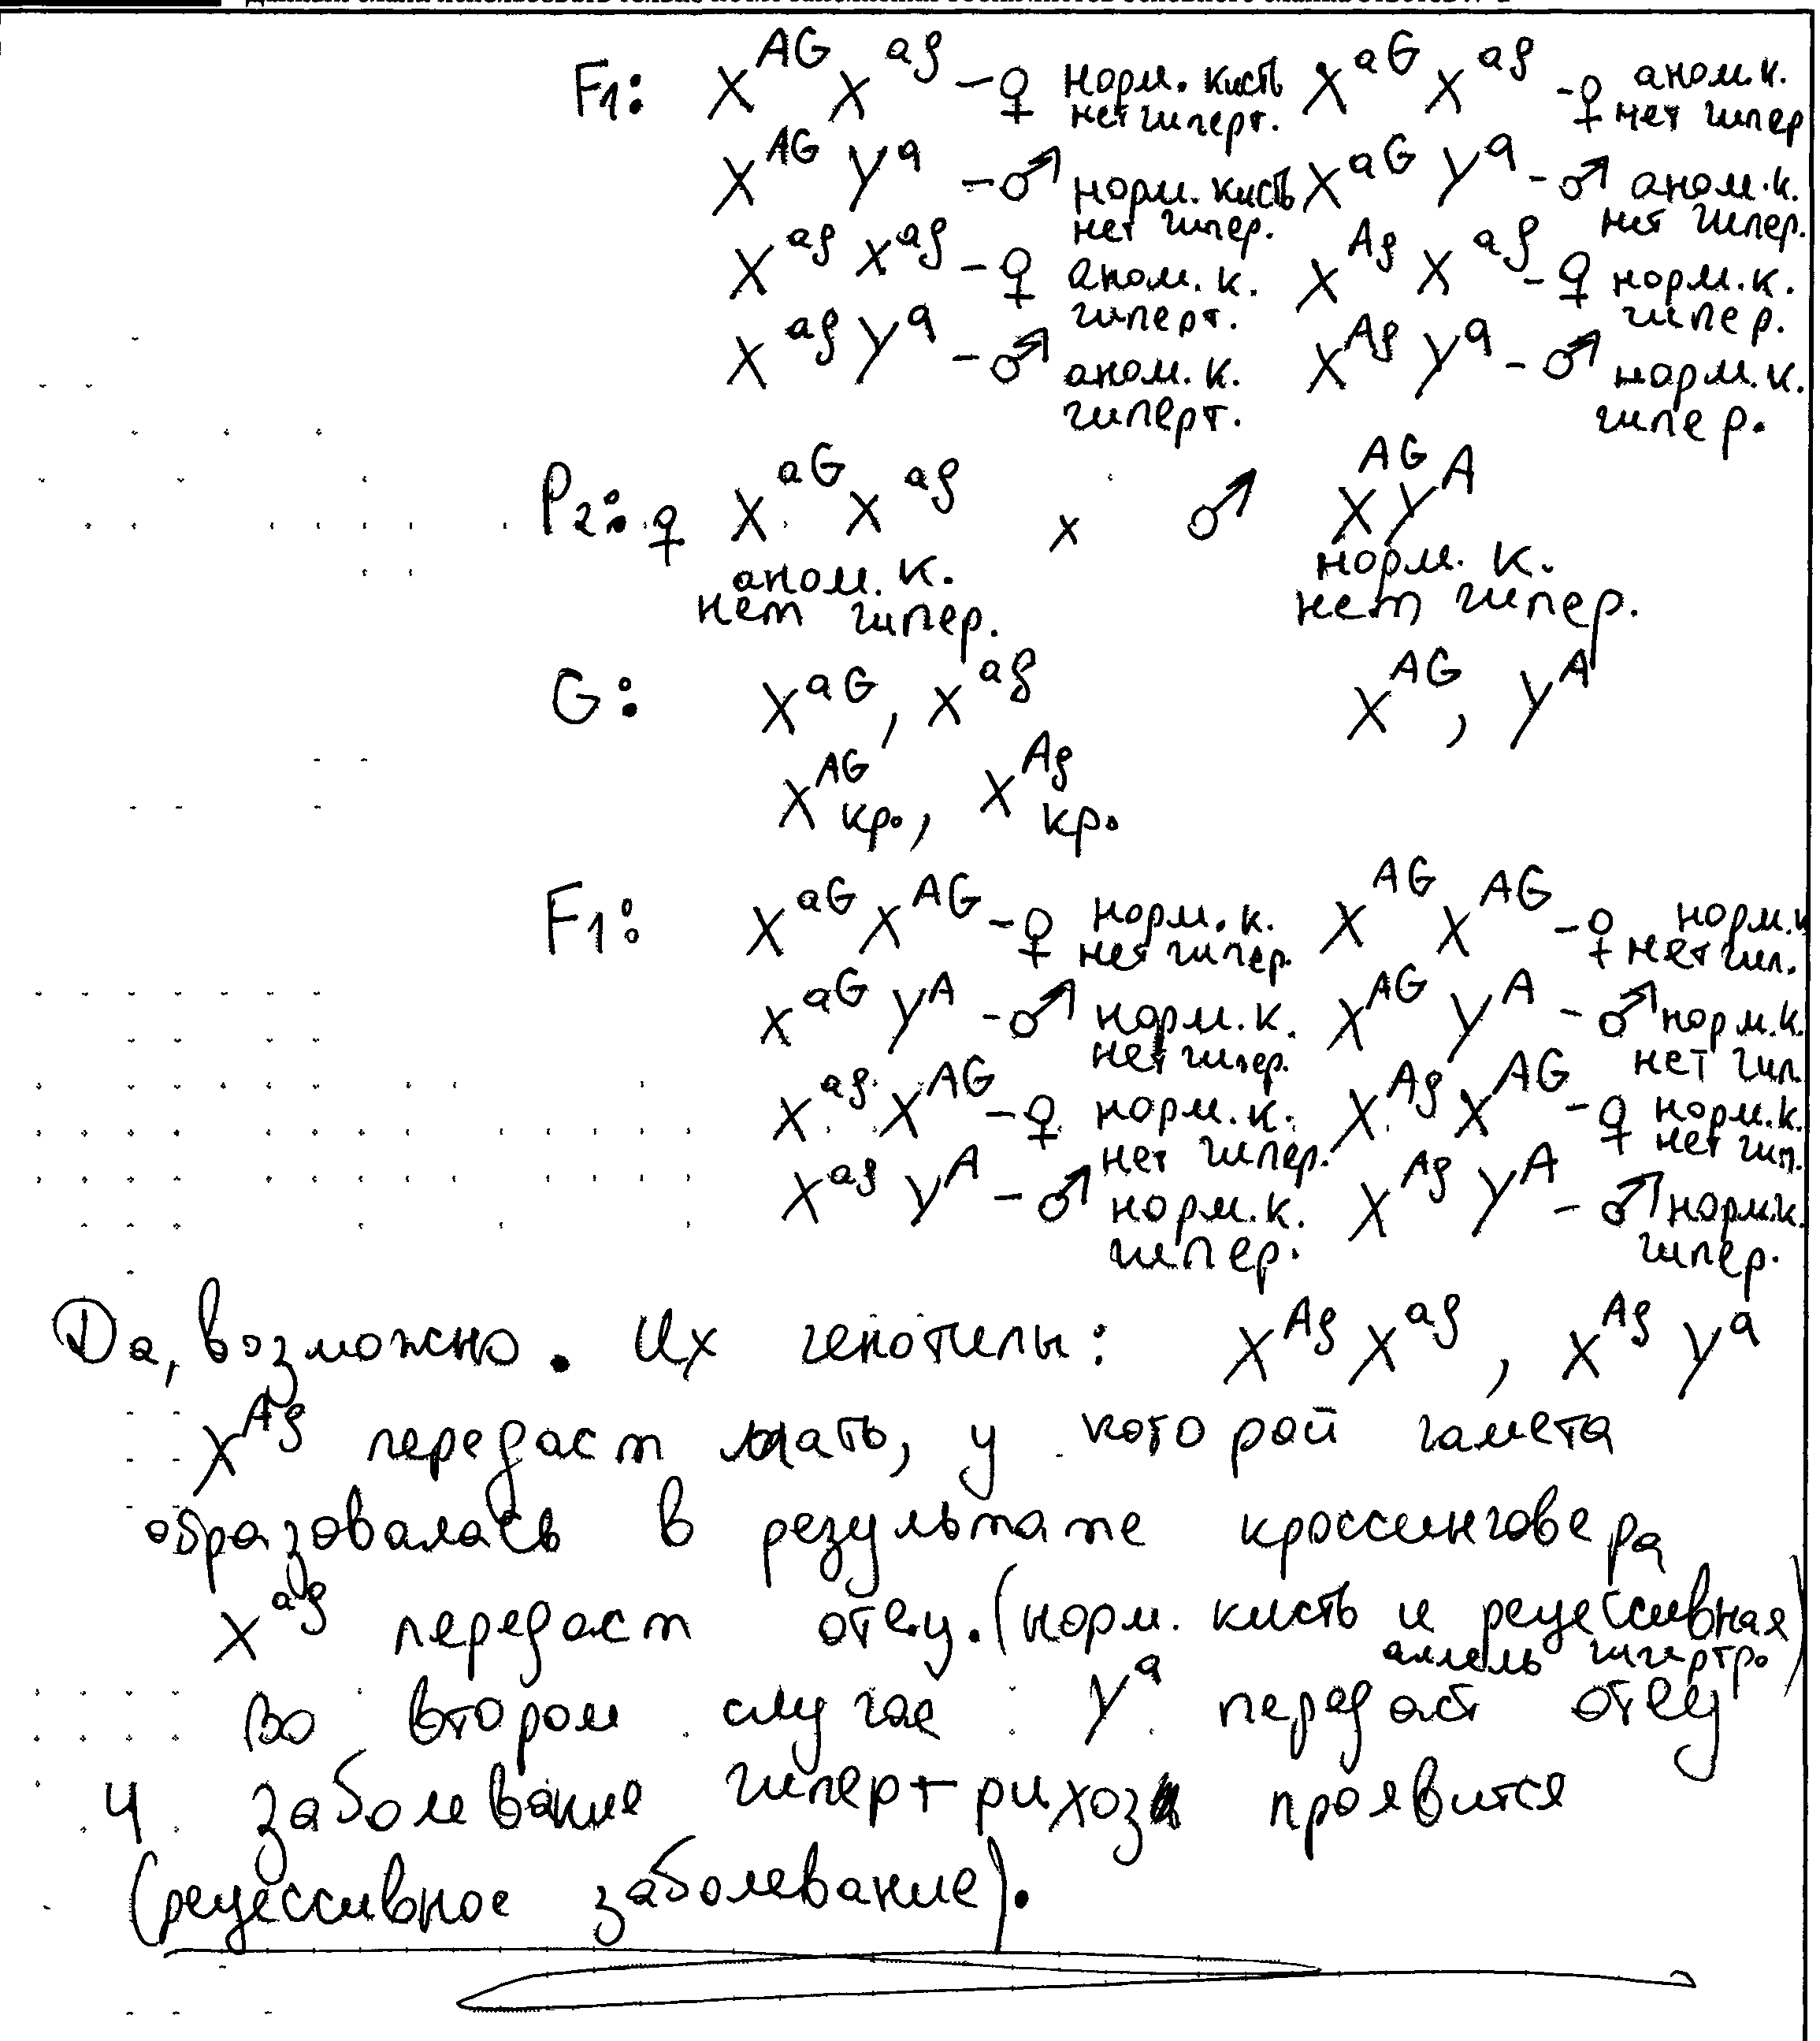 F1: X^AG X^ag – ♀ норм. кисть нет гиперт. X^aG X^ag – ♀ аном. к. нет гипер
X^AG Y^a – ♂ норм. кисть нет гипер. X^aG Y^a – ♂ аном. к. нет гипер.
X^ag X^ag – ♀ аном. к. гиперт. X^Ag X^ag – ♀ норм. к. гипер.
X^ag Y^a – ♂ аном. к. гиперт. X^Ag Y^a – ♂ норм. к. гипер.
P2: ♀ X^aG X^ag x ♂ X^AG Y^A
аном. к. норм. к.
нет гипер. нет гипер.
G: X^aG, X^ag X^AG, Y^A
X^AG кр., X^Ag кр.
F1: X^aG X^AG – ♀ норм. к. нет гипер. X^AG X^AG – ♀ норм. к нет гип.
X^aG Y^A – ♂ норм. к. нет гипер. X^AG Y^A – ♂ норм. к. нет гип.
X^ag X^AG – ♀ норм. к. нет гипер. X^Ag X^AG – ♀ норм. к. нет гип.
X^ag Y^A – ♂ норм. к. гипер. X^Ag Y^A – ♂ норм. к. гипер.
Да, возможно. Их генотипы: X^Ag X^ag, X^Ag Y^a
X^Ag передаст мать, у которой гамета
образовалась в результате кроссинговера
X^ag передаст отец. (норм. кисть и рецессивная
аллель гипертр.)
Во втором случае Y^a передаст отец
И заболевание гипертрихоз проявится
(рецессивное заболевание).